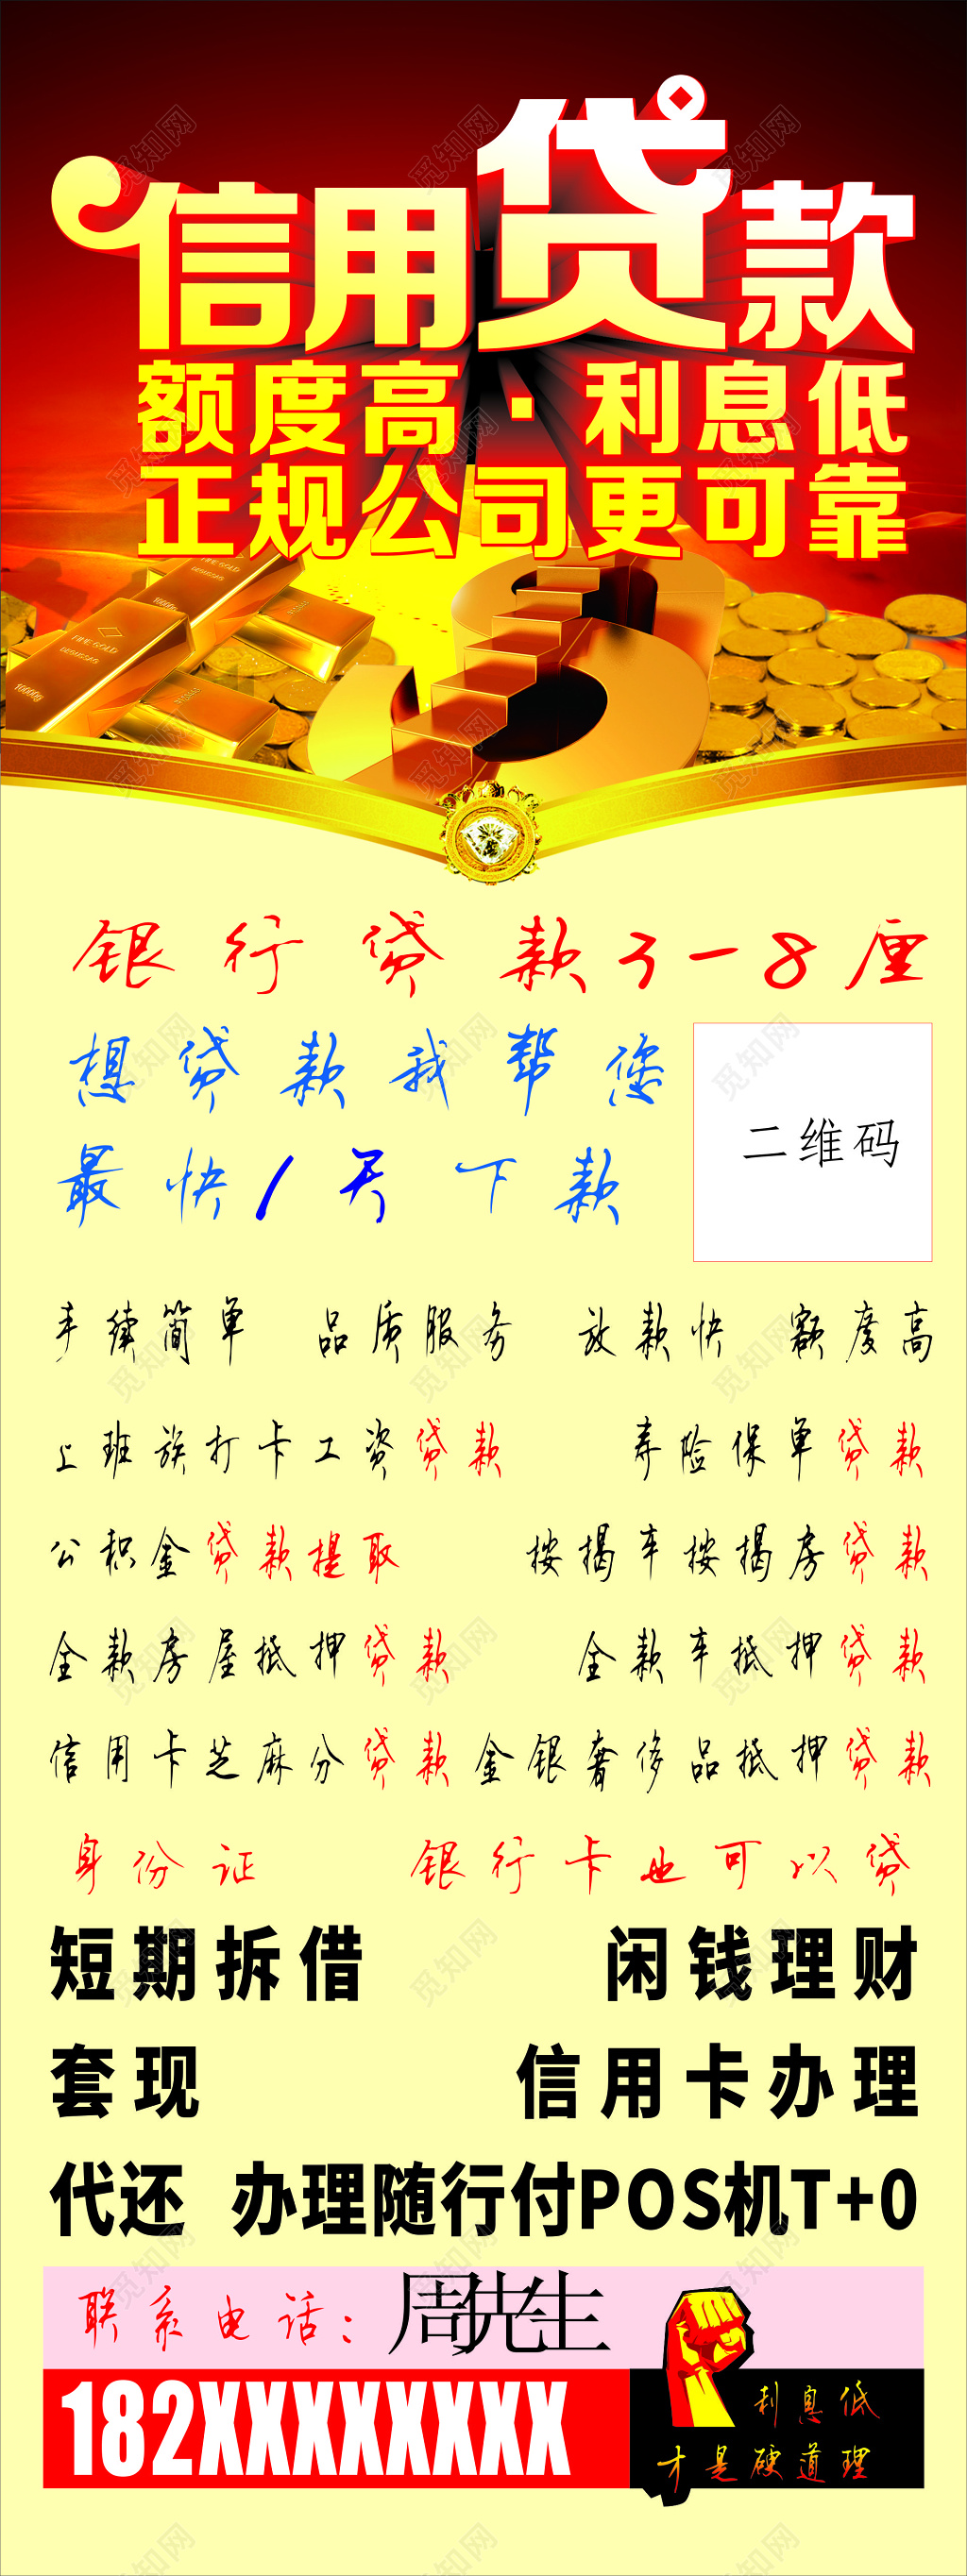 信用贷款
额度高·利息低
正规公司更可靠
FINE GOLD
10000g
银行贷款3-8厘
想贷款我帮您
最快1天下款
二维码
手续简单 品质服务 放款快 额度高
上班族打卡工资贷款 寿险保单贷款
公积金贷款提取 按揭车按揭房贷款
全款房屋抵押贷款 全款车抵押贷款
信用卡芝麻分贷款 金银奢侈品抵押贷款
身份证 银行卡也可以贷
短期拆借 闲钱理财
套现 信用卡办理
代还 办理随行付POS机T+0
联系电话：周先生
182XXXXXXXX
利息低
才是硬道理
觅知网